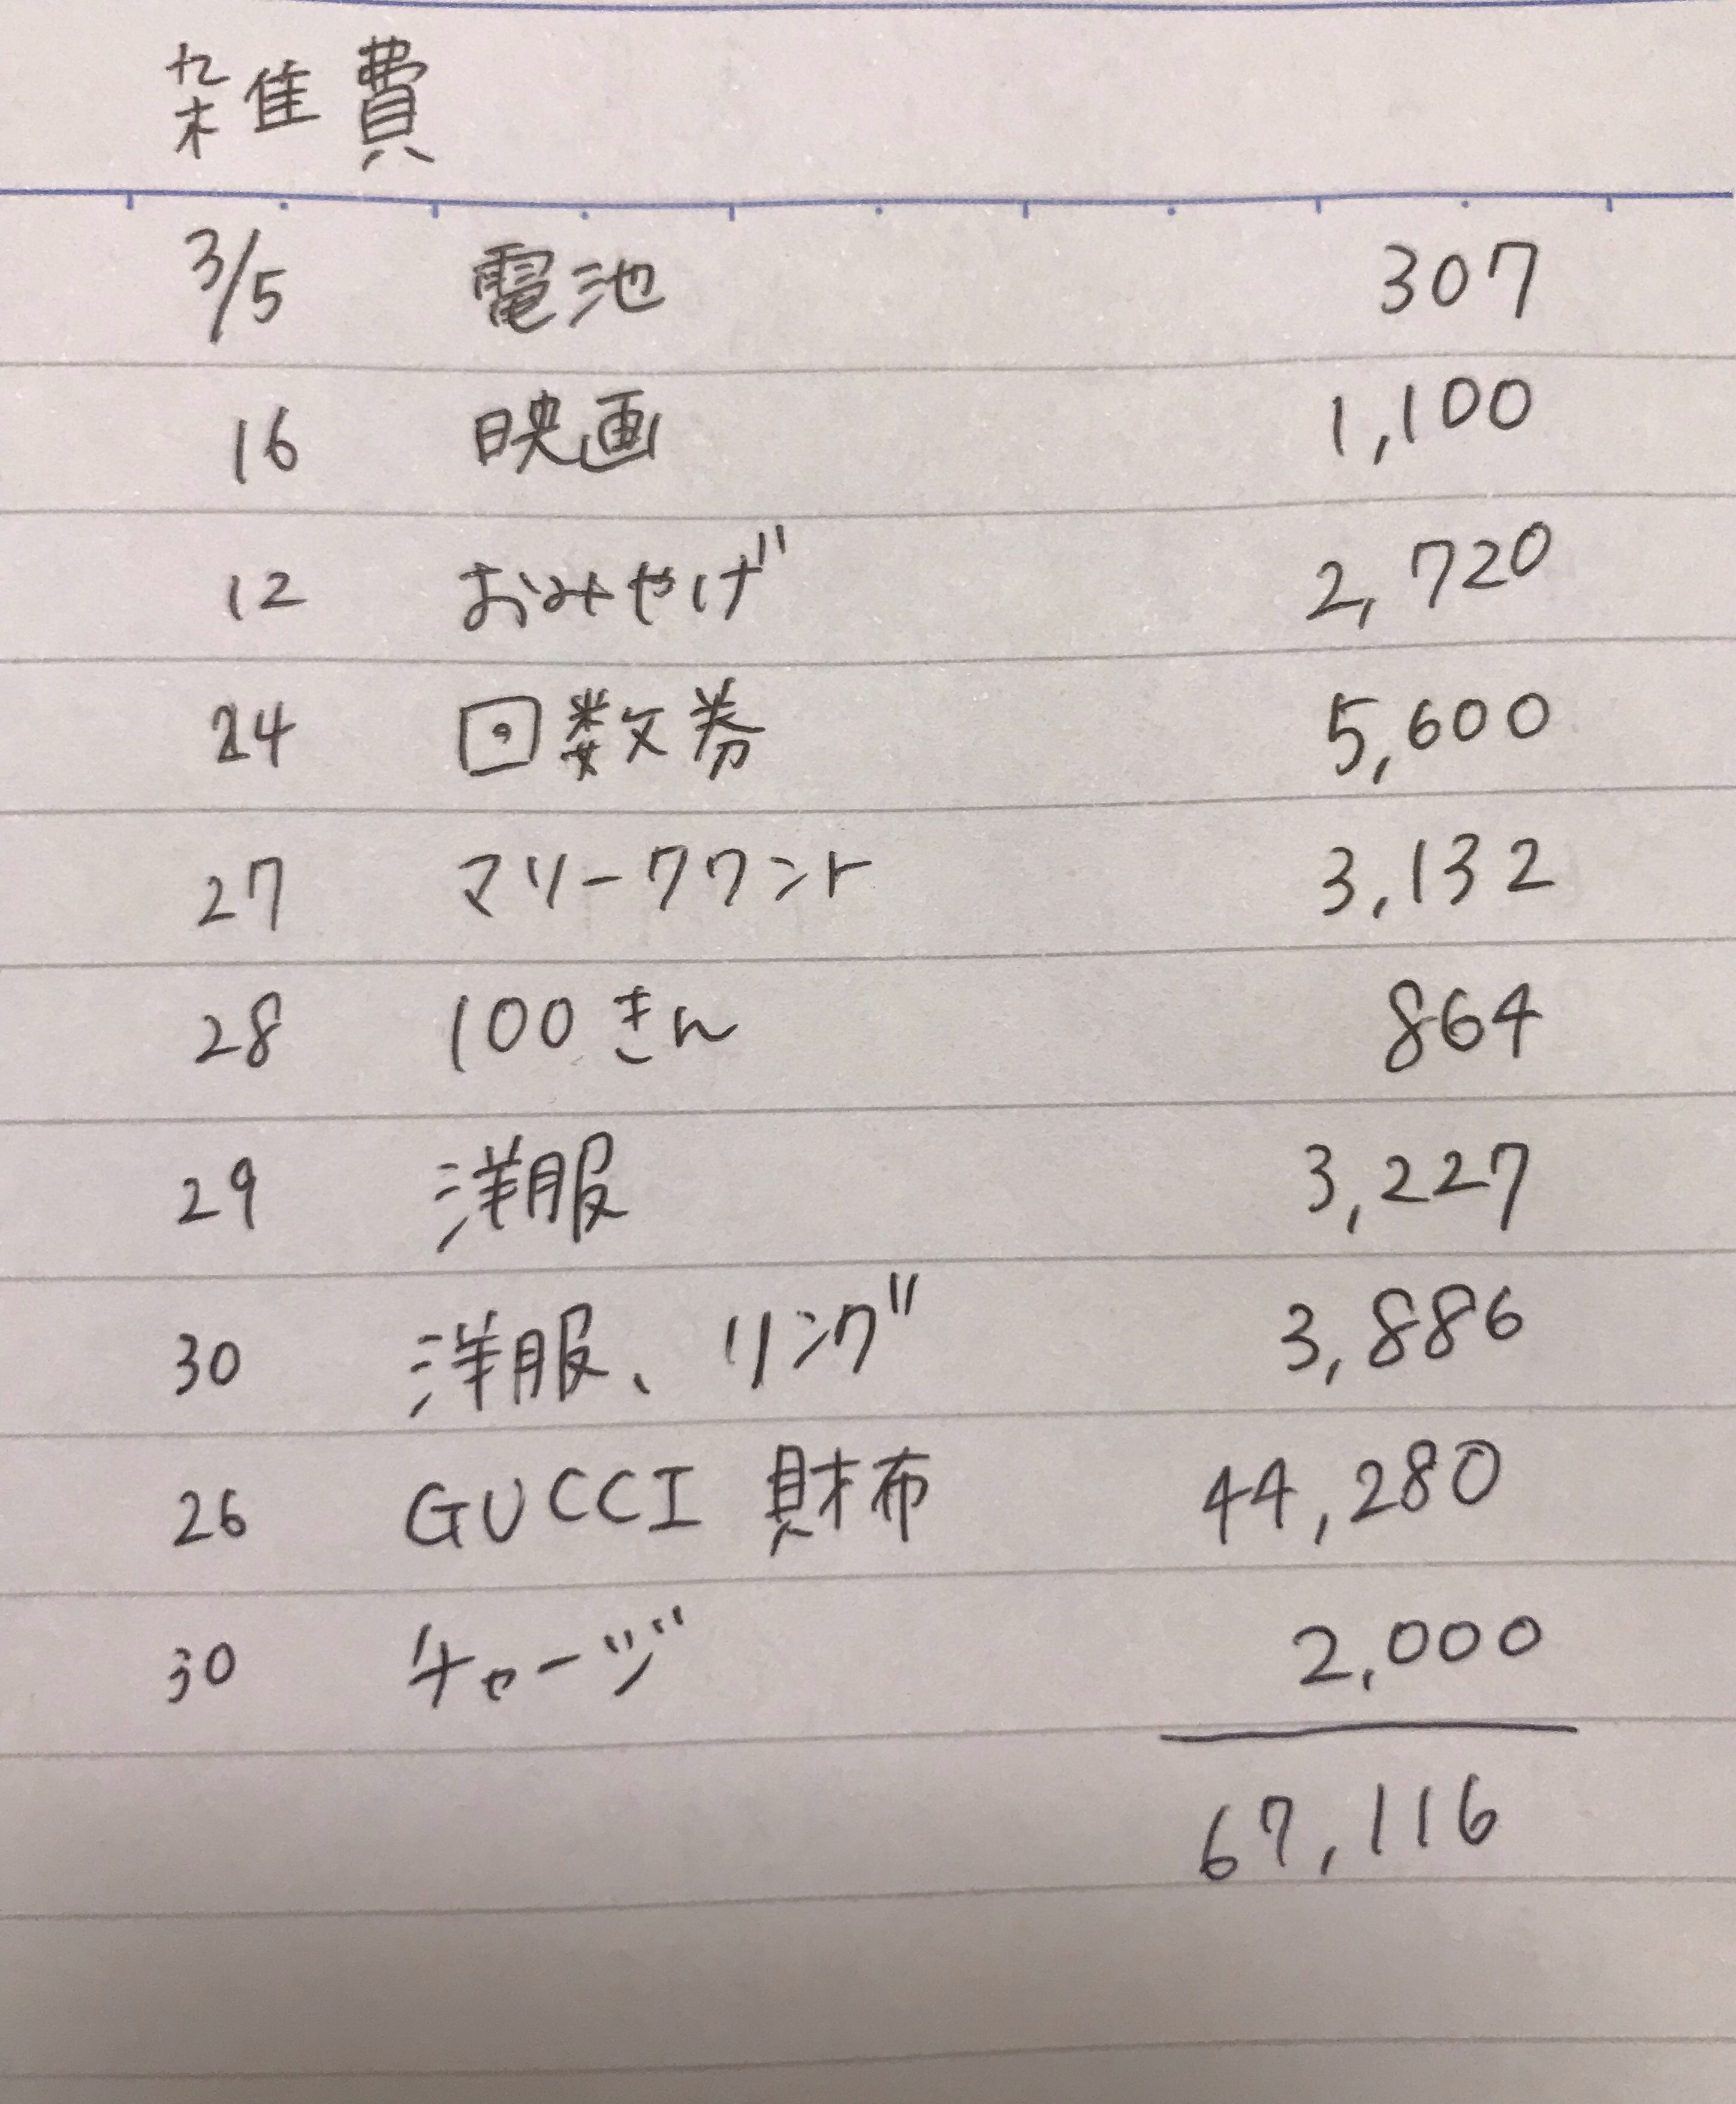 雑費
3/5 電池 307
16 映画 1,100
12 おみやげ 2,720
24 回数券 5,600
27 マリークワント 3,132
28 100きん 864
29 洋服 3,227
30 洋服、リング 3,886
26 GUCCI 財布 44,280
30 チャージ 2,000
67,116